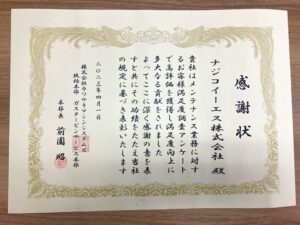 感謝状
ナジコイーエス株式会社 殿
貴社はメンテナンス業務に対す
るお客様満足度調査アンケート
で高評価を獲得し満足度向上に
多大なる貢献をされました
よってここに深く感謝の意を表
すと共にその功績をたたえ当社
の規定に基づき表彰いたします
二〇二三年四月一日
株式会社カワサキマシンシステムズ
統括本部 ガスタービンサービス本部
本部長 前園 昭